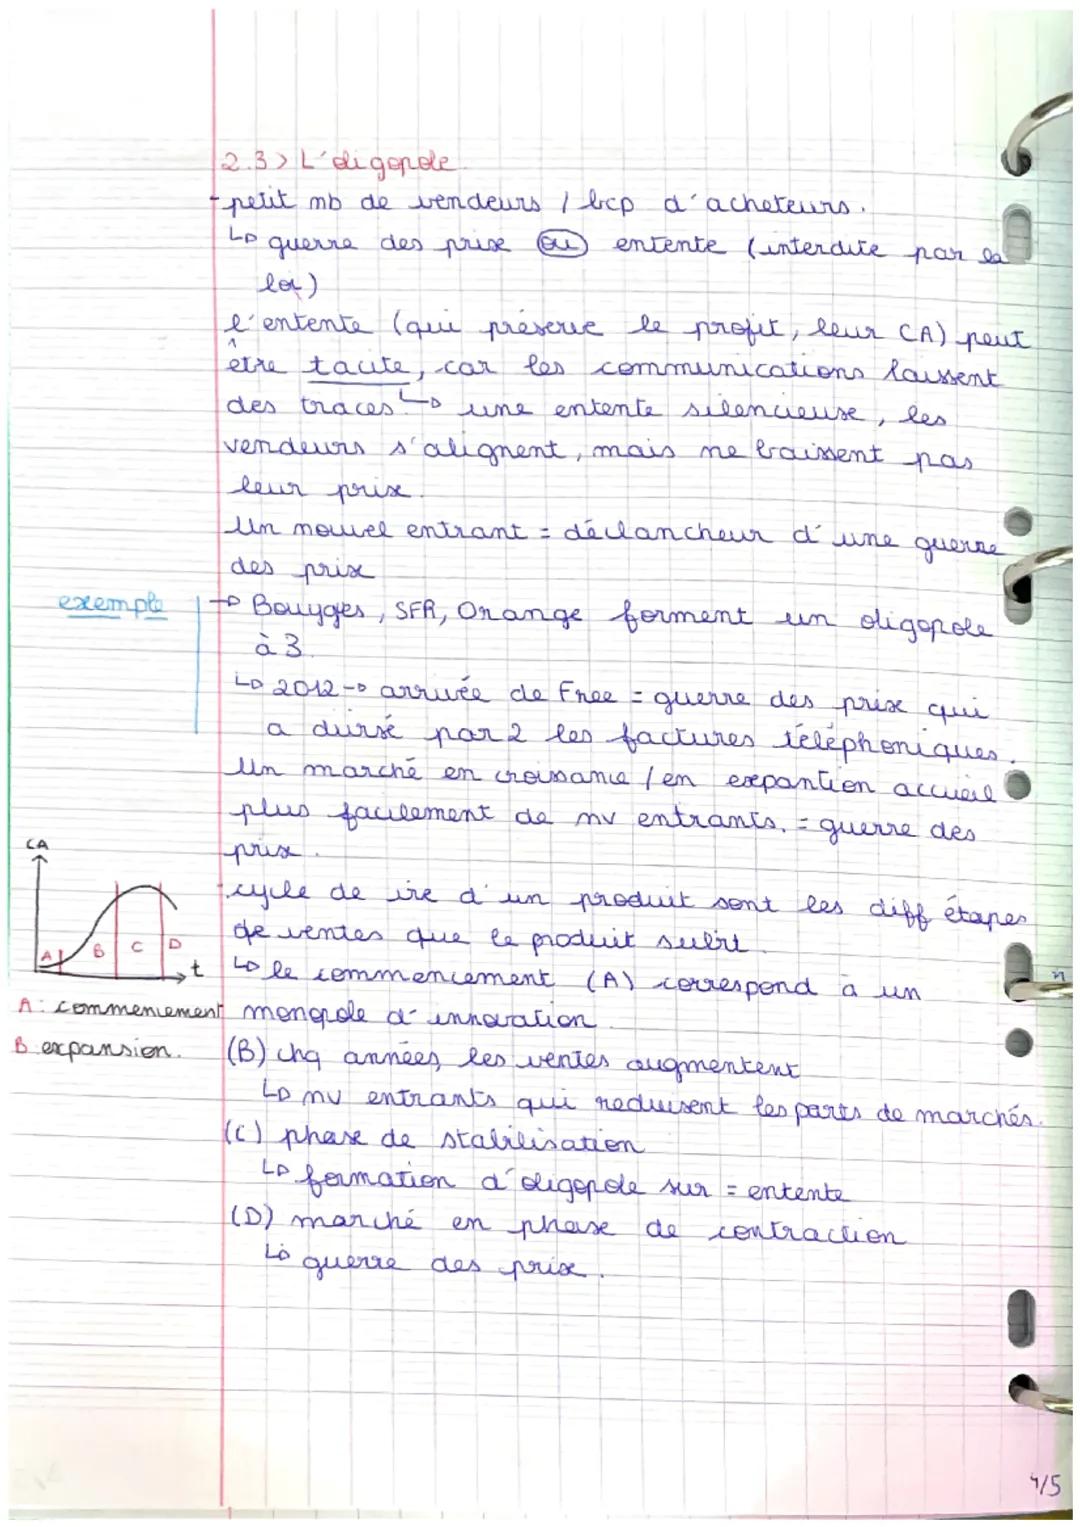 2.3> L'oligopole.
- petit nb de vendeurs / bcp d'acheteurs.
↳ guerre des prix ou entente (interdite par la
loi)
l'entente (qui préserve le profit, leur CA) peut
être tacite, car les communications laissent
des traces. ↳ une entente silencieuse, les
vendeurs s'alignent, mais ne baissent pas
leur prix.
Un nouvel entrant = déclancheur d'une guerre
des prix
exemple
→ Bouyges, SFR, Orange forment un oligopole
à 3.
↳ 2012 → arrivée de Free = guerre des prix qui
a divisé par 2 les factures téléphoniques.
Un marché en croissance / en expantion accueil
plus facilement de nv entrants. = guerre des
prix.
CA
A B C D
t
A: commencement
B expansion.
cycle de vie d'un produit sont les diff étapes
de ventes que le produit subit.
↳ le commencement (A) correspond à un
monopole d'innovation.
(B) chq années, les ventes augmentent
↳ nv entrants qui reduisent les parts de marchés.
(C) phase de stabilisation
↳ formation d'oligopole sur = entente
(D) marché en phase de contraction
↳ guerre des prix.
4/5